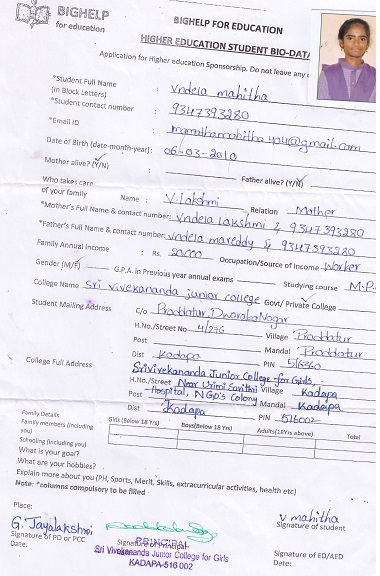 BIGHELP
for education
BIGHELP FOR EDUCATION
HIGHER EDUCATION STUDENT BIO-DATA
Application for Higher education Sponsorship. Do not leave any
*Student Full Name : Vndela mahitha
(in Block Letters)
*Student contact number : 9347393280
*Email ID : @gmail.com
Date of Birth (date-month-year): 06-03-2010
Mother alive? (Y/N) Father alive? (Y/N)
Who takes care
of your family Name : V. Lakshmi Relation Mother
*Mother's Full Name & contact number: Vndela Lakshmi & 9347393280
*Father's Full Name & contact number: Vndela mareddy & 9347393280
Family Annual Income : Rs. 20000 Occupation/Source of Income Worker
Gender (M/F) G.P.A. in Previous year annual exams Studying course M.P.
College Name Sri vivekananda junior college Govt/ Private College
Student Mailing Address C/o Proddatur, DwarakaNagar
H.No./Street No 4/276 Village Proddatur
Post Mandal Proddatur
Dist Kadapa PIN
College Full Address Srivivekananda Junior College for Girls,
H.No./Street Near Village Kadapa
Post Hospital, NGO's Colony Mandal Kadapa
Dist Kadapa PIN 516002
Family Details Girls (Below 18 Yrs) Boys(Below 18 Yrs) Adults(18Yrs above) Total
Family members (including you)
Schooling (including you)
What is your goal?
What are your hobbies?
Explain more about you (PH, Sports, Merit, Skills, extracurricular activities, health etc)
Note: *columns compulsory to be filled
Place:
G. Jayalakshmi V mahitha
Signature of PO or PCC Signature of Principal Signature of student
PRINCIPAL
Date: Sri Vivekananda Junior College for Girls Signature of ED/AED
KADAPA-516 002 Date: